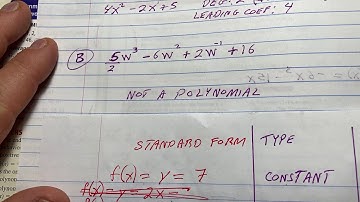 4x² - 2x + 5
DEG: 2
LEADING COEF: 4
B 5/2 w³ - 6w² + 2w⁻¹ + 16
NOT A POLYNOMIAL
STANDARD FORM TYPE
f(x) = y = 7 CONSTANT
f(x) = y = 2x -